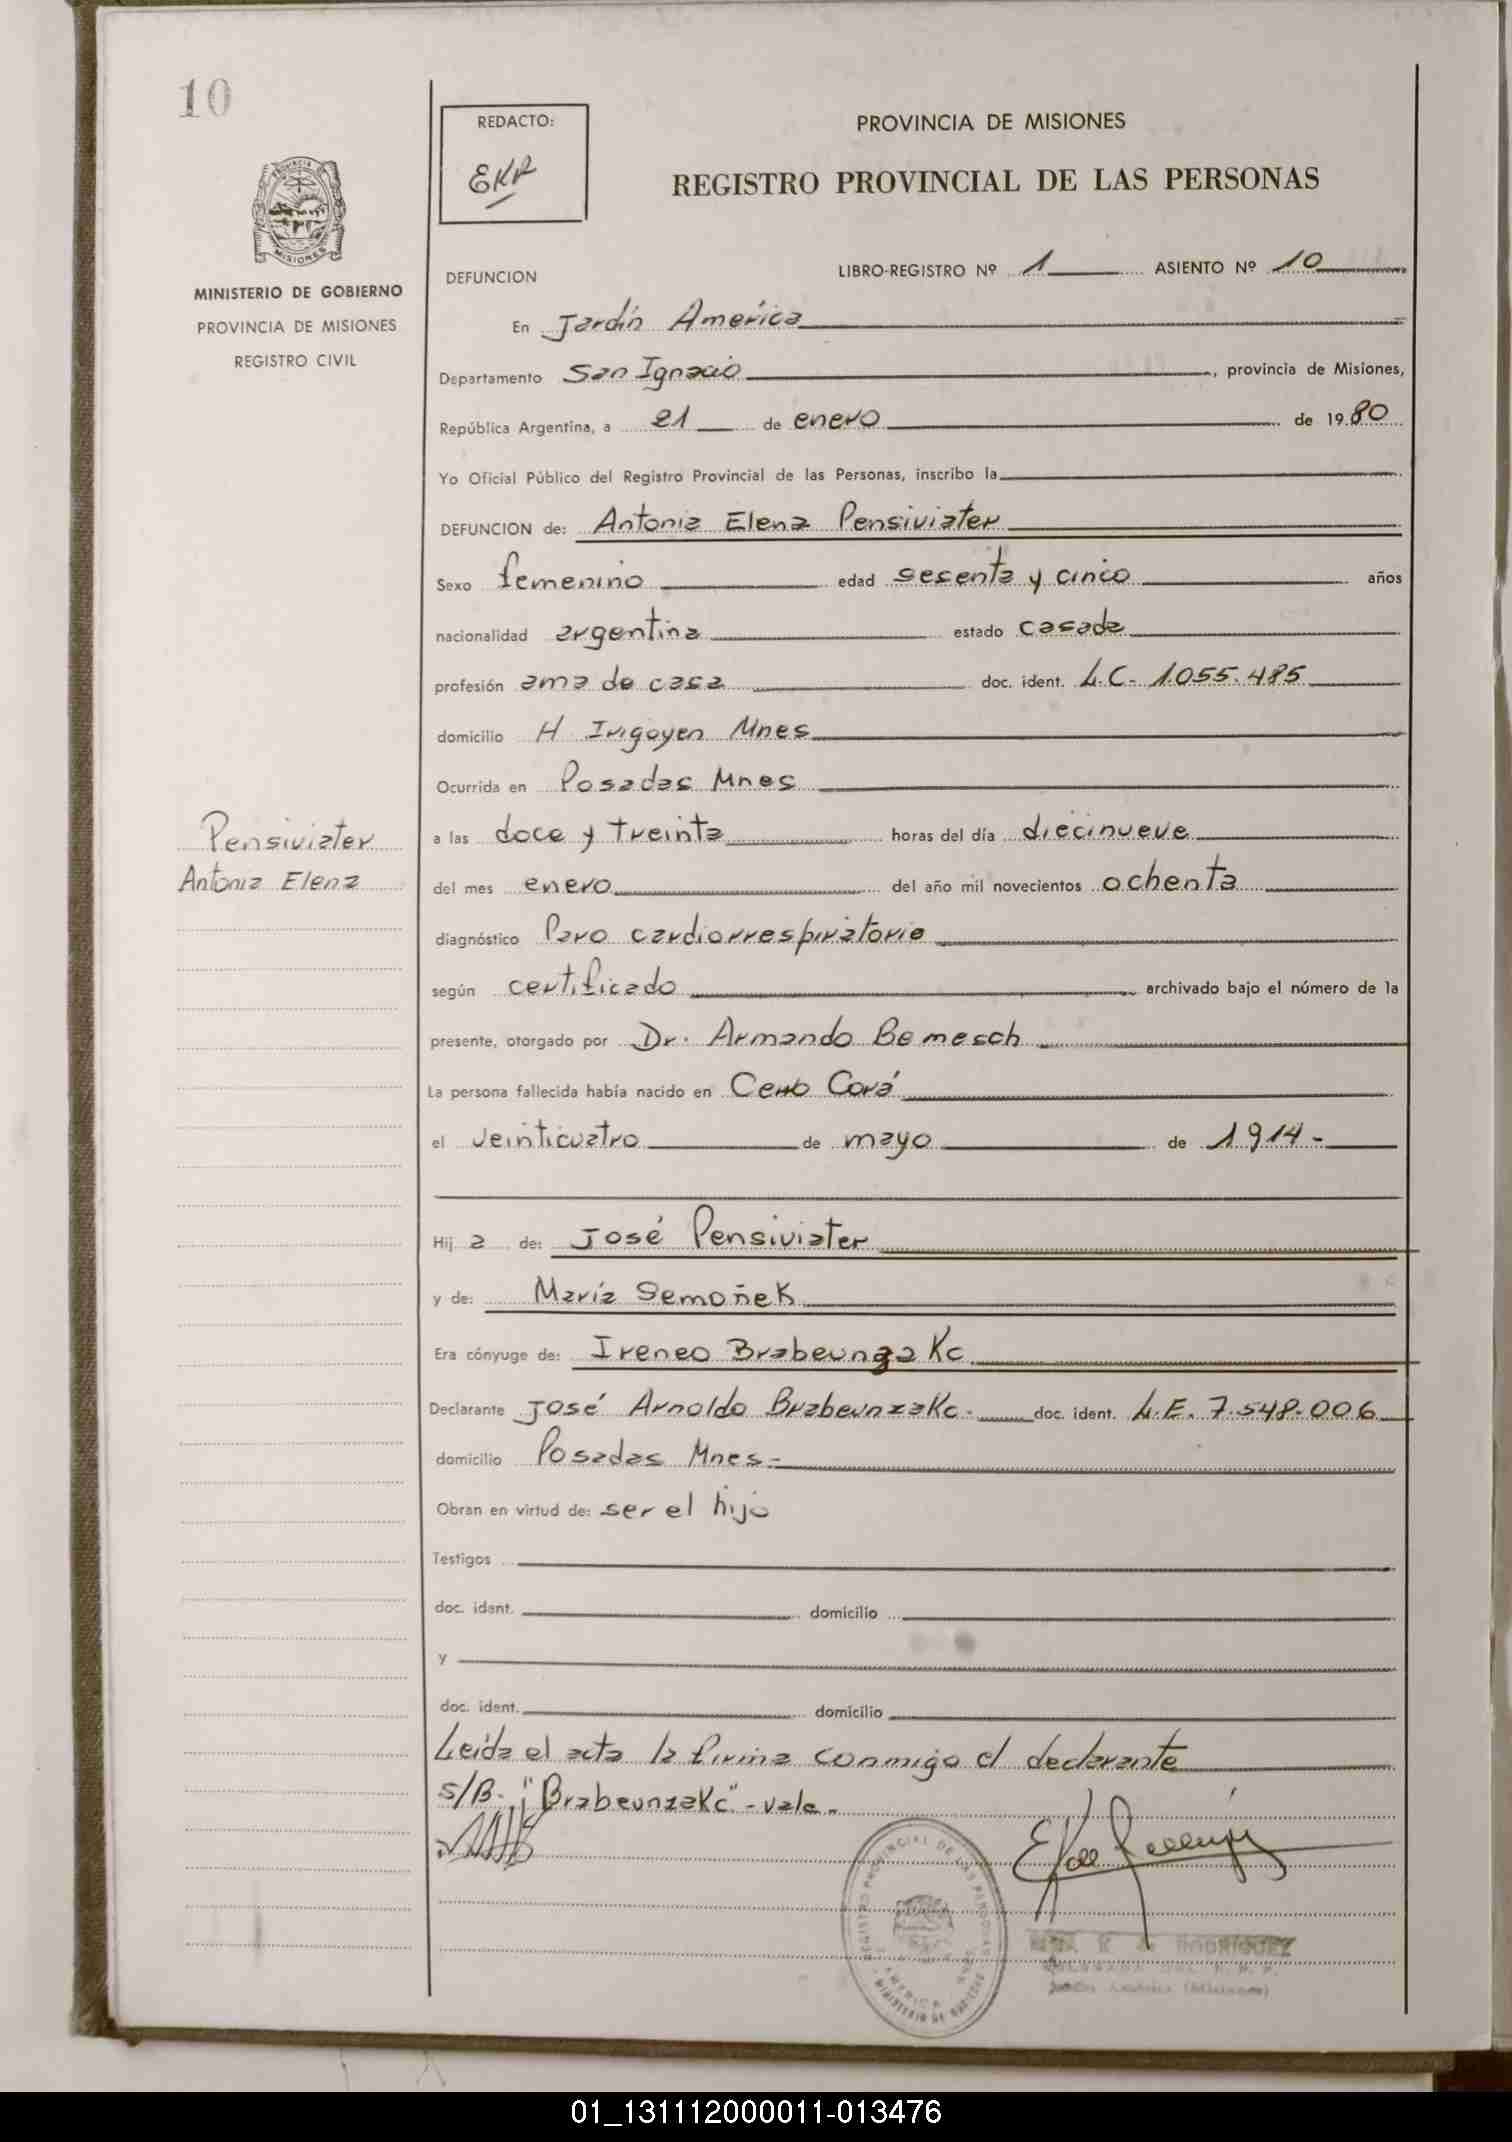 10
MINISTERIO DE GOBIERNO
PROVINCIA DE MISIONES
REGISTRO CIVIL
Pensiviater
Antonia Elena
REDACTO:
EKR
PROVINCIA DE MISIONES
REGISTRO PROVINCIAL DE LAS PERSONAS
DEFUNCION LIBRO-REGISTRO Nº 1 ASIENTO Nº 10
En Jardín América
Departamento San Ignacio, provincia de Misiones,
República Argentina, a 21 de enero de 1980
Yo Oficial Público del Registro Provincial de las Personas, inscribo la
DEFUNCION de: Antonia Elena Pensiviater
Sexo femenino edad sesenta y cinco años
nacionalidad argentina estado casada
profesión ama de casa doc. ident. L.C- 1.055.485
domicilio H Irigoyen Mnes
Ocurrida en Posadas Mnes
a las doce y treinta horas del día diecinueve
del mes enero del año mil novecientos ochenta
diagnóstico Paro cardiorrespiratorio
según certificado archivado bajo el número de la
presente, otorgado por Dr. Armando Bemesch
La persona fallecida había nacido en Cerro Corá
el veinticuatro de mayo de 1914-
Hij a de: José Pensiviater
y de: María Semoñek
Era cónyuge de: Ireneo BrabeunzaKc
Declarante José Arnoldo BrabeunzaKc- doc. ident. L.E. 7.548.006
domicilio Posadas Mnes-
Obran en virtud de: ser el hijo
Testigos
doc. ident. domicilio
y
doc. ident. domicilio
Leída el acta la firma conmigo el declarante
S/B. "BrabeunzaKc"-vale-
REGISTRO PROVINCIAL DE LAS PERSONAS
RODRIGUEZ
Jardín América (Misiones)
01_131112000011-013476